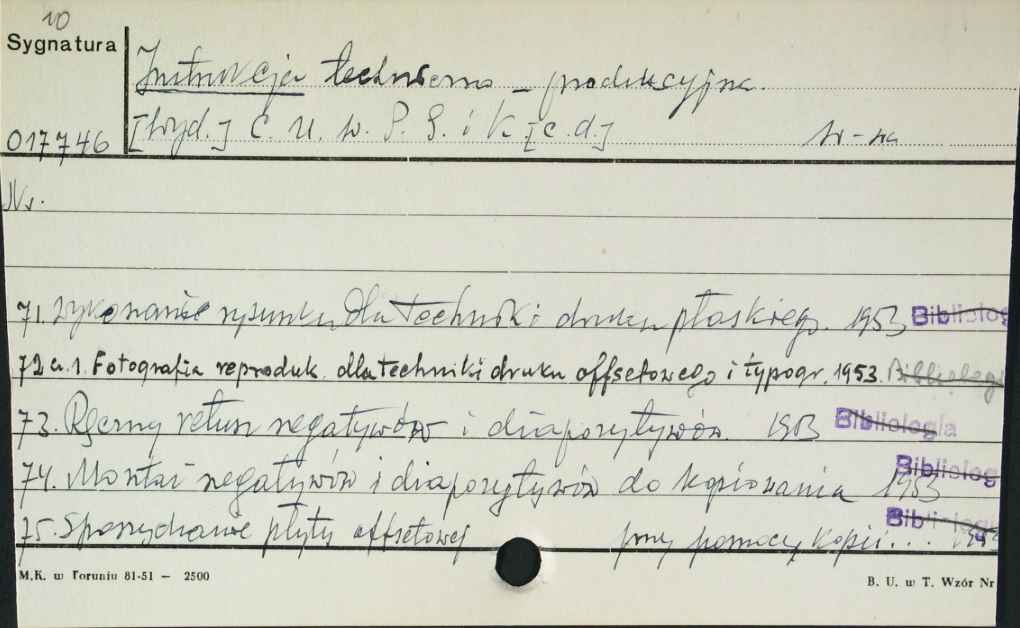 10
Sygnatura
Instrukcja techniczno-produkcyjna.
017746 [Wyd.] C. U. W. P. G. i K. [c.d.] W-wa
Nr.
71. Wykonanie rysunku dla techniki druku płaskiego. 1953 Bibliolog
72 cz. 1. Fotografia reproduk. dla techniki druku offsetowego i typogr. 1953. Bibliologi
73. Ręczny retusz negatywów i diapozytywów. 1953 Bibliologia
74. Montaż negatywów i diapozytywów do kopiowania 1953 Bibliolog
75. Sporządzanie płyty offsetowej przy pomocy kopii... 1953 Bibliologi
M.K. w Toruniu 81-51 — 2500 B. U. w T. Wzór Nr